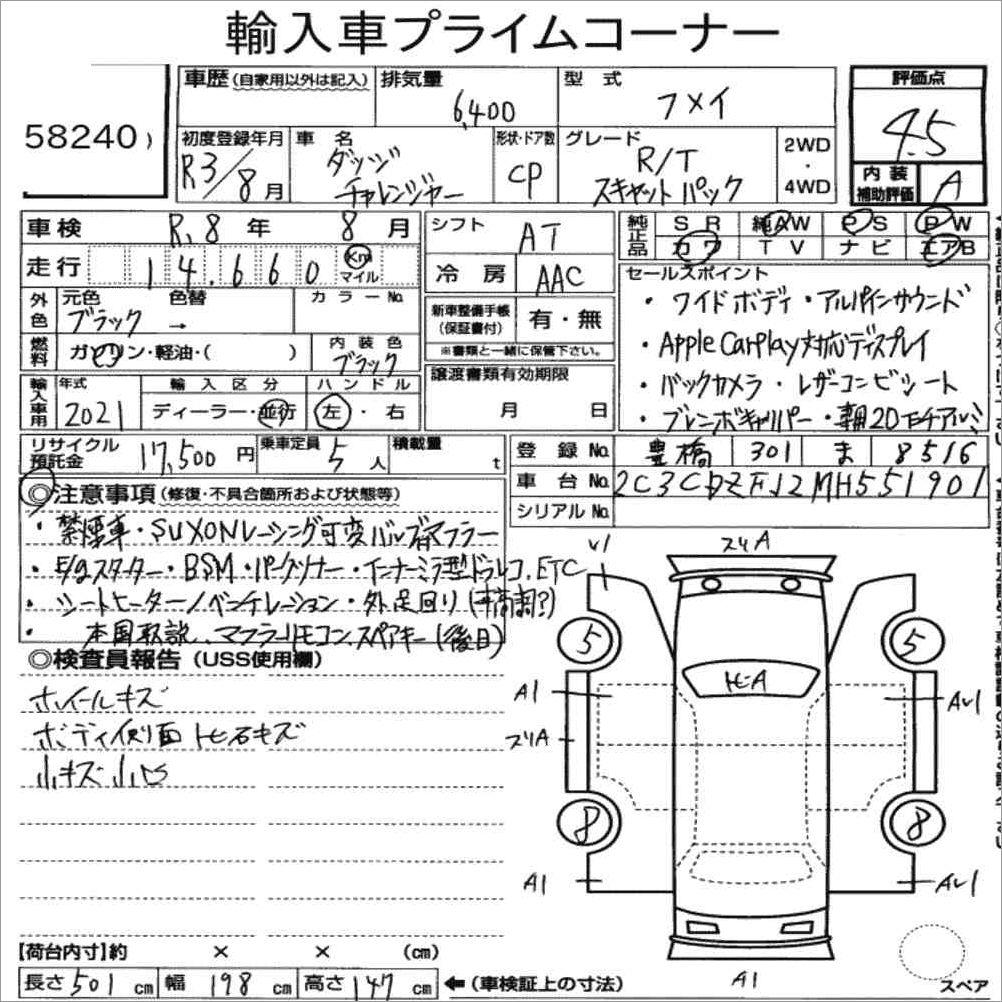 輸入車プライムコーナー
58240 )
車歴 (自家用以外は記入)
排気量 6,400
型式 フメイ
評価点 4.5
内装補助評価 A
初度登録年月 R3/8月
車名 ダッジ チャレンジャー
形状・ドア数 CP
グレード R/T スキャットパック
2WD・4WD
車検 R.8年 8月
走行 14,660 Km マイル
外色 元色 ブラック 色替 → カラーNo.
燃料 ガソリン・軽油・( )
内装色 ブラック
輸入車用 年式 2021
輸入区分 ディーラー・並行
ハンドル 左・右
シフト AT
冷房 AAC
新車整備手帳(保証書付) 有・無
※書類と一緒に保管下さい。
譲渡書類有効期限 月 日
純正品 SR 純AW PS PW
カワ TV ナビ エアB
セールスポイント
・ワイドボディ・アルパインサウンド
・Apple Carplay対応ディスプレイ
・バックカメラ・レザーコンビシート
・ブレンボキャリパー・車朝20モチアルミ
リサイクル預託金 17,500円
乗車定員 5人
積載量 t
登録No. 豊橋 301 ま 8516
車台No. 2C3CDZFJ2MH551901
シリアルNo.
◎注意事項 (修復・不具合箇所および状態等)
・禁煙車・SUXONレーシング可変バルブ マフラー
・E/gスターター・BSM・Pソナー・インナーミラ型ドラレコ.ETC
・シートヒーター/ベンチレーション・外足回り(車高調?)
・本国取説、マフラーリモコン.スペアキー(後日)
◎検査員報告 (USS使用欄)
ホイールキズ
ボディ側面 飛石キズ
小キズ 小凹
スリA
5
5
ヒA
A1
AU1
スリA
8
8
A1
AU1
A1
スペア
【荷台内寸】約 × × (cm)
長さ 501 cm 幅 198 cm 高さ 147 cm ←(車検証上の寸法)